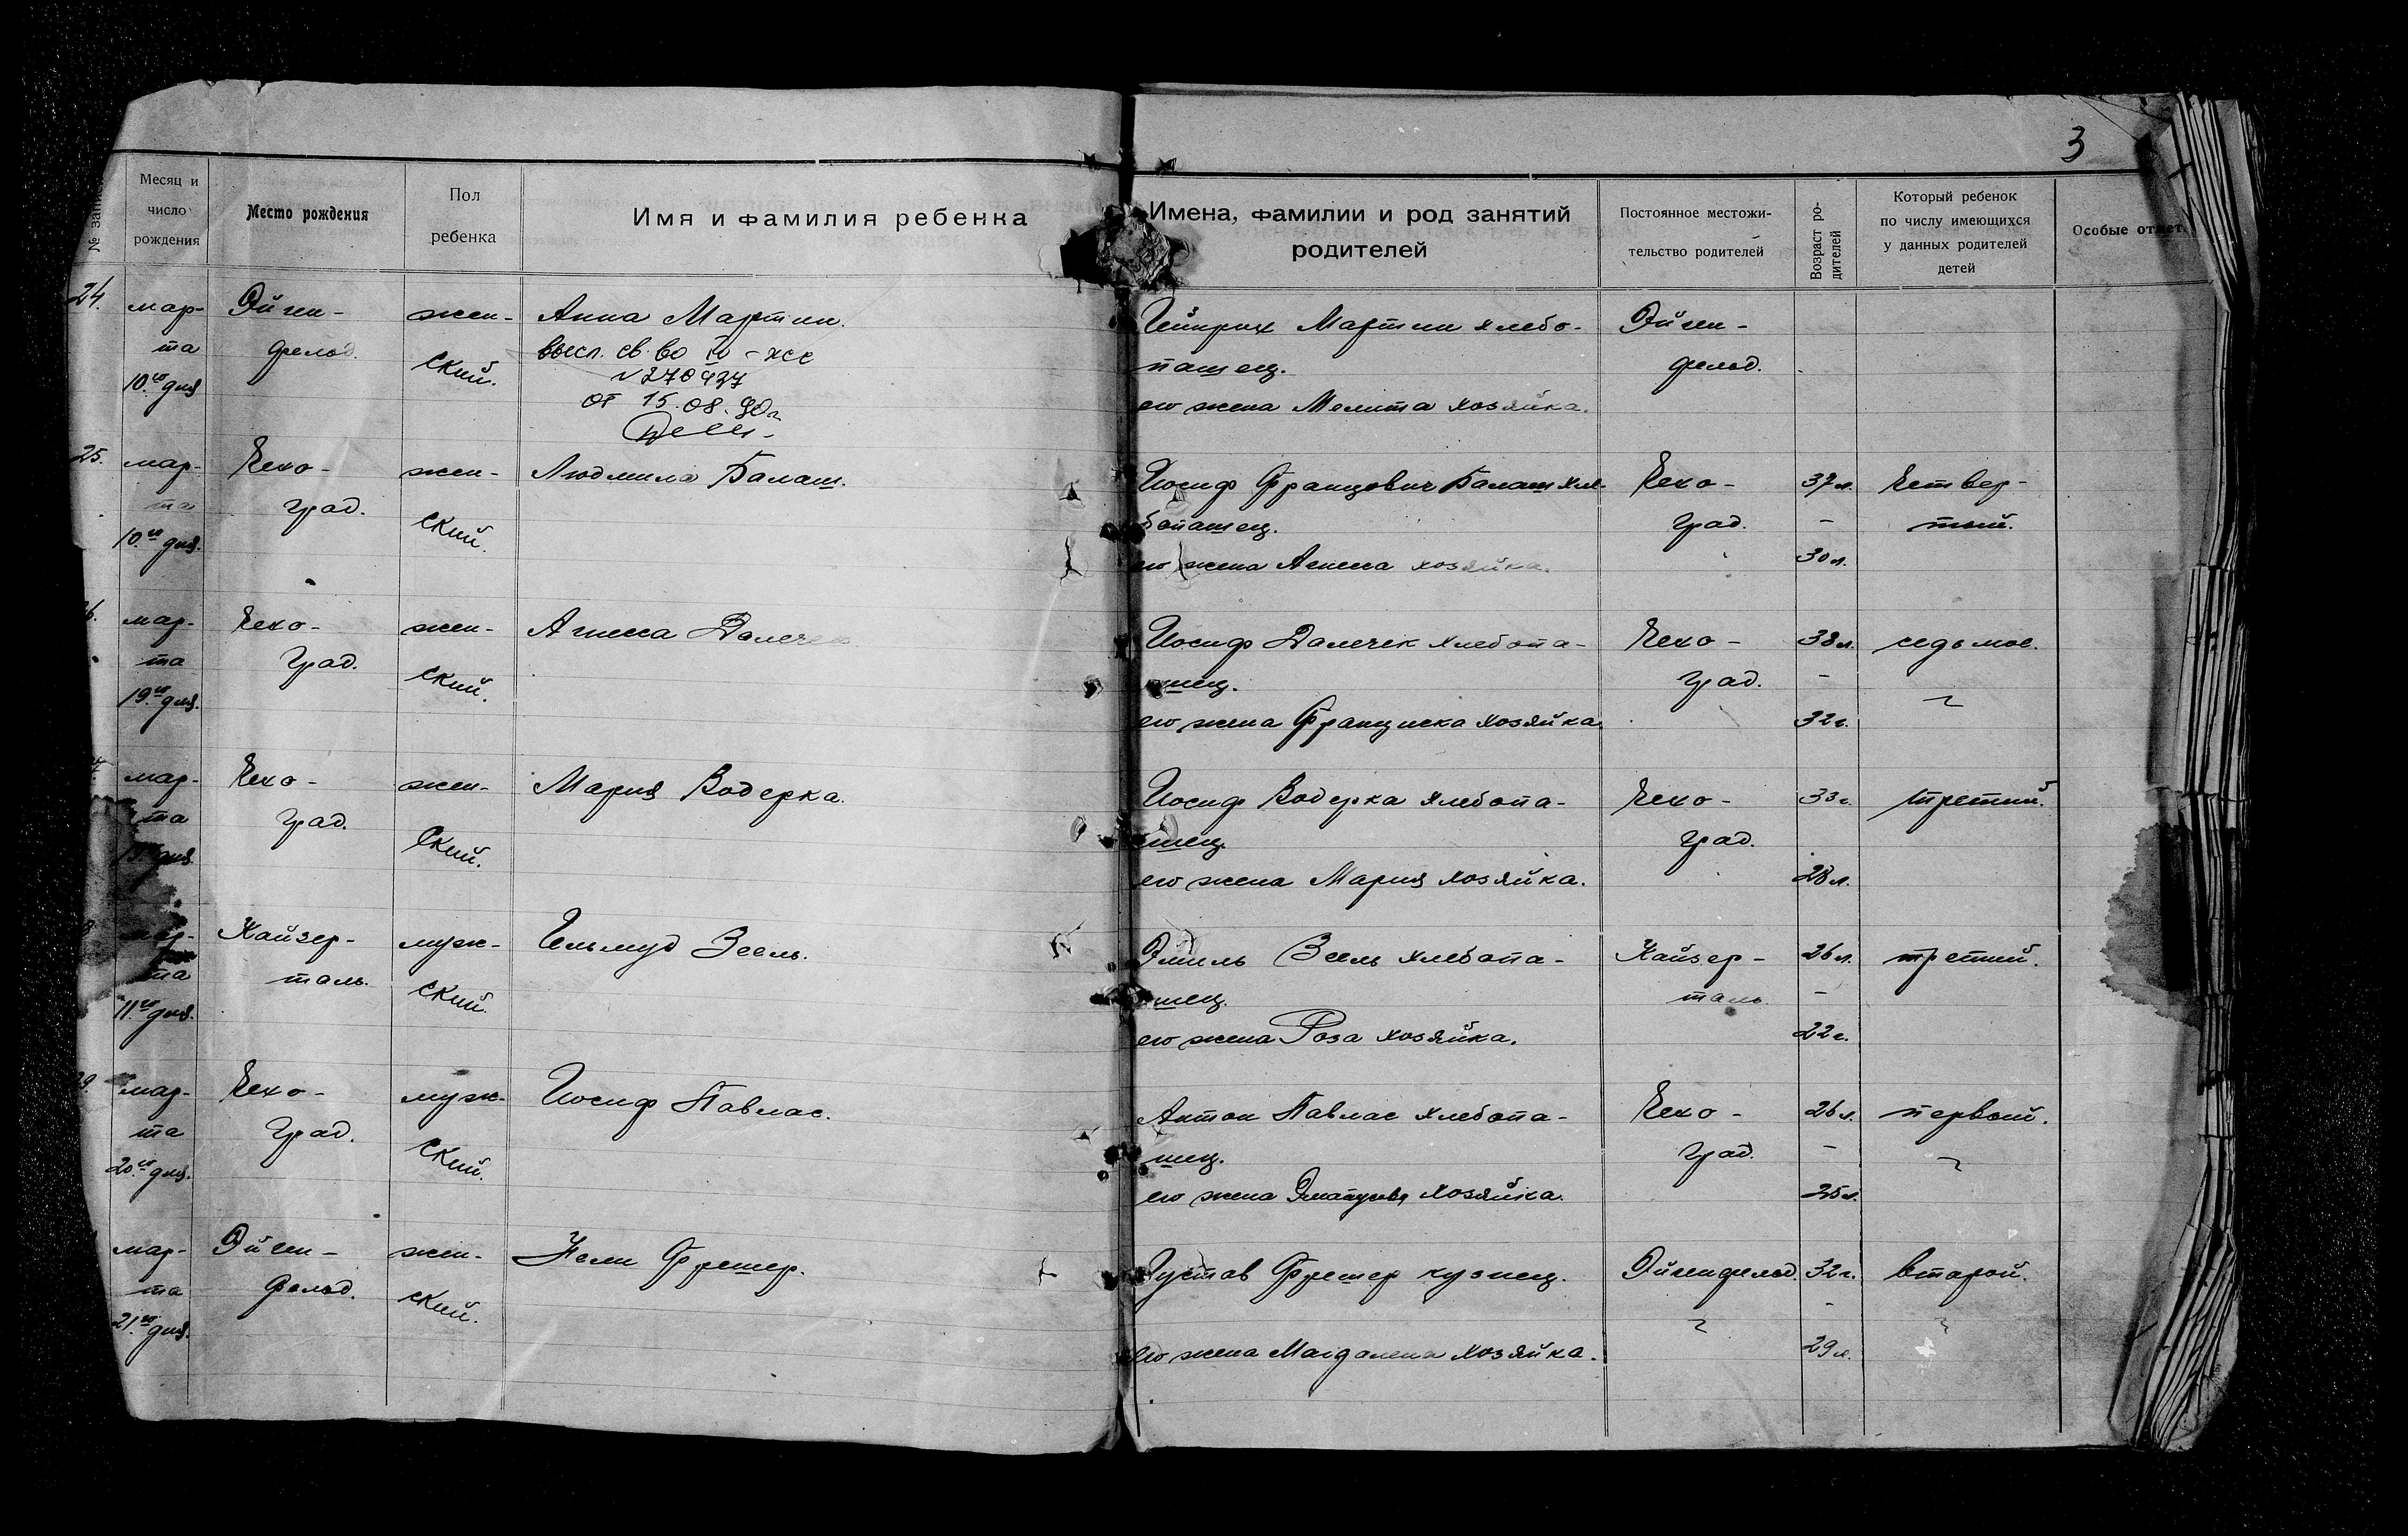 3
№ запис
Месяц и
число
рождения
Место рождения
Пол
ребенка
Имя и фамилия ребенка
Имена, фамилии и род занятий
родителей
Постоянное местожи-
тельство родителей
Возраст ро-
дителей
Который ребенок
по числу имеющихся
у данных родителей
детей
Особые отмет.
24.
мар-
та
10.го дня
Эйген-
фельд.
жен-
ский.
Анна Мартин.
высл. св. во
№ 270437
от 15.08.90г.
Гейнрих Мартин хлебо-
пашец.
его жена Мелита хозяйка.
Эйген-
фельд.
25.
мар-
та
10.го дня.
Чехо-
град.
жен-
ский.
Людмила Балаш.
Иосиф Францович Балаш хле-
бопашец.
его жена Агнесса хозяйка.
Чехо-
град.
37 л.
-
30 л.
Четвер-
тый.
6.
мар-
та
19.го дня.
Чехо-
град.
жен-
ский.
Агнесса Далечек
Иосиф Далечек хлебопа-
шец.
его жена Франциска хозяйка.
Чехо-
град.
38 л.
-
32 г.
седьмое.
мар-
та
дня.
Чехо-
град.
жен-
ский.
Мария Водерка.
Иосиф Водерка хлебопа-
шец.
его жена Мария хозяйка.
Чехо-
град.
33 г.
28 л.
третий.
8
мар-
та
11.го дня.
Кайзер-
таль.
муж-
ский.
Гельмуд Зеель.
Эмиль Зеель хлебопа-
шец.
его жена Роза хозяйка.
Кайзер-
таль.
26 л.
-
22 г.
третий.
9.
мар-
та
20.го дня.
Чехо-
град.
муж-
ский.
Иосиф Павлас.
Антон Павлас хлебопа-
шец.
его жена хозяйка.
Чехо-
град.
26 л.
-
25 л.
первый.
мар-
та
21.го дня.
Эйген-
фельд.
жен-
ский.
Нели Фрешер.
Густав Фрешер кузнец.
его жена Магдалена хозяйка.
Эйгенфельд.
32 г.
-
29 л.
второй.